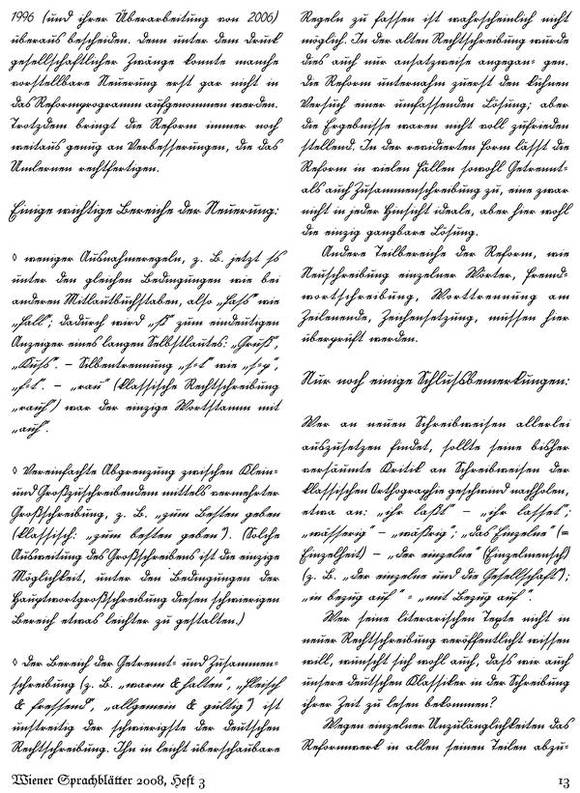 1996 (und ihrer Überarbeitung von 2006)
überaus bescheiden. denn unter dem Druck
gesellschaftlicher Zwänge konnte manche
vorstellbare Neuerung erst gar nicht in
das Reformprogramm aufgenommen werden.
Trotzdem bringt die Reform immer noch
weitaus genug an Verbesserungen, die das
Umlernen rechtfertigen.
Einige wichtige Bereiche der Neuerung:
◊ weniger Ausnahmeregeln, z. B. jetzt ss
unter den gleichen Bedingungen wie bei
anderen Mitlautbuchstaben, also „Fass“ wie
„Fall“; dadurch wird „ß“ zum eindeutigen
Anzeiger eines langen Selbstlautes: „Gruß“,
„Kuss“. – Silbentrennung „s-t“ wie „s-p“,
„f-t“. – „rau“ (klassische Rechtschreibung
„rauh“) war der einzige Wortstamm mit
„auh“.
◊ Vereinfachte Abgrenzung zwischen Klein-
und Großzuschreibendem mittels vermehrter
Großschreibung, z. B. „zum Besten geben“
(klassisch: „zum besten geben“). (Solche
Ausweitung des Großschreibens ist die einzige
Möglichkeit, unter den Bedingungen der
Hauptwortgroßschreibung diesen schwierigen
Bereich etwas leichter zu gestalten.)
◊ Der Bereich der Getrennt- und Zusammen-
schreibung (z. B. „warm & halten“, „Fleisch
& fressend“, „allgemein & gültig“) ist
unstreitig der schwierigste der deutschen
Rechtschreibung. Ihn in leicht überschaubare
Regeln zu fassen ist wahrscheinlich nicht
möglich. In der alten Rechtschreibung wurde
dies auch nur ansatzweise angegan- gen.
die Reform unternahm zuerst den kühnen
Versuch einer umfassenden Lösung; aber
die Ergebnisse waren nicht voll zufrieden
stellend. In der revidierten Form lässt die
Reform in vielen Fällen sowohl Getrennt-
als auch Zusammenschreibung zu, eine zwar
nicht in jeder Hinsicht ideale, aber hier wohl
die einzig gangbare Lösung.
Andere Teilbereiche der Reform, wie
Neuschreibung einzelner Wörter, Fremd-
wortschreibung, Worttrennung am
Zeilenende, Zeichensetzung, müssen hier
übergangen werden.
Nur noch einige Schlussbemerkungen:
Wer an neuen Schreibweisen allerlei
auszusetzen findet, sollte seine bisher
versäumte Kritik an Schreibweisen der
klassischen Orthographie geschwind nachholen,
etwa an: „ihr laßt“ – „ihr lasset“;
„wässerig“ – „wäßrig“; „das Einzelne“ (=
Einzelheit) – „der einzelne“ (Einzelmensch)
(z. B. „der einzelne und die Gesellschaft“);
„in bezug auf“ = „mit Bezug auf“.
Wer seine literarischen Texte nicht in
neuer Rechtschreibung veröffentlicht wissen
will, wünscht sich wohl auch, dass wir auch
unsere deutschen Klassiker in der Schreibung
ihrer Zeit zu lesen bekommen?
Wegen einzelner Unzulänglichkeiten das
Reformwerk in allen seinen Teilen abzu-
Wiener Sprachblätter 2008, Heft 3
13